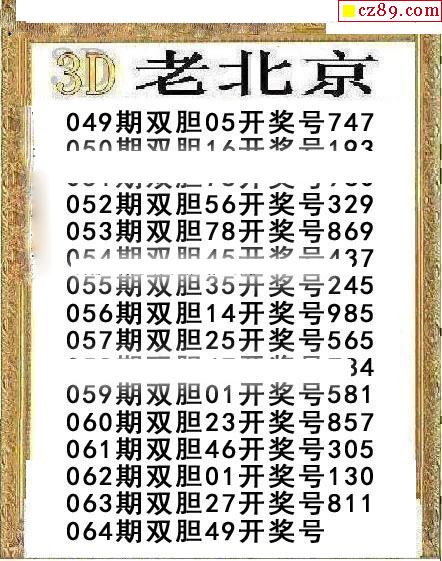 cz89.com
3D 老北京
049期双胆05开奖号747
050期双胆16开奖号193
052期双胆56开奖号329
053期双胆78开奖号869
054期双胆45开奖号437
055期双胆35开奖号245
056期双胆14开奖号985
057期双胆25开奖号565
059期双胆01开奖号581
060期双胆23开奖号857
061期双胆46开奖号305
062期双胆01开奖号130
063期双胆27开奖号811
064期双胆49开奖号